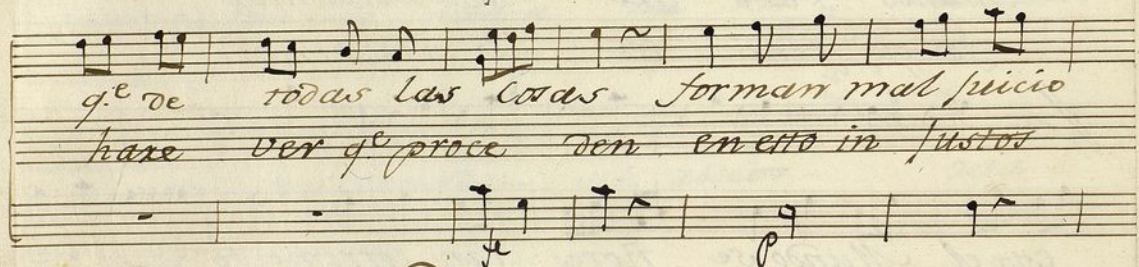 q.e de todas las cosas forman mal juicio
hare ver q.e proce den en esto in justos
fe p